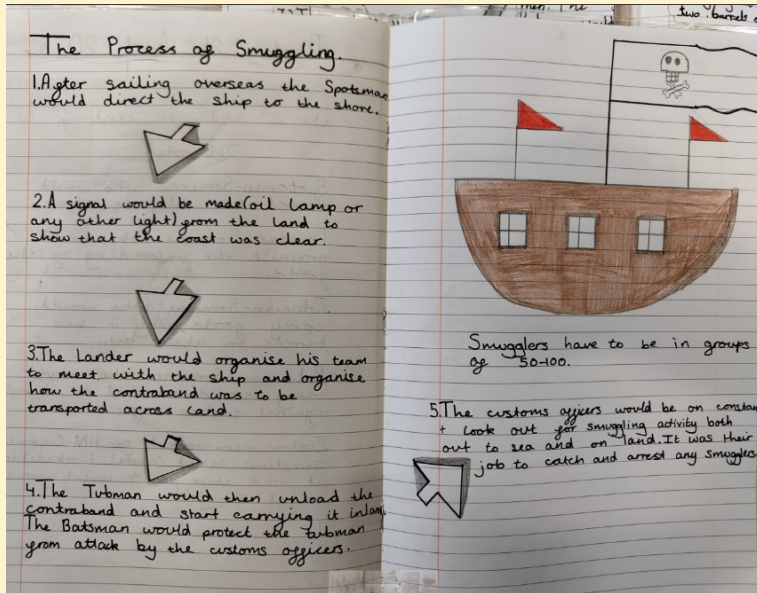 then. The
two barrels
The Process of Smuggling.
1.After sailing overseas the Spotsman
would direct the ship to the shore.
2.A signal would be made(oil lamp or
any other light) from the land to
show that the coast was clear.
3.The Lander would organise his team
to meet with the ship and organise
how the contraband was to be
transported across land.
4.The Tubman would then unload the
contraband and start carrying it inland
The Batsman would protect the tubman
from attack by the customs officers.
Smugglers have to be in groups
of 50-100.
5.The customs officers would be on constan
t look out for smuggling activity both
out to sea and on land.It was their
job to catch and arrest any smuggler